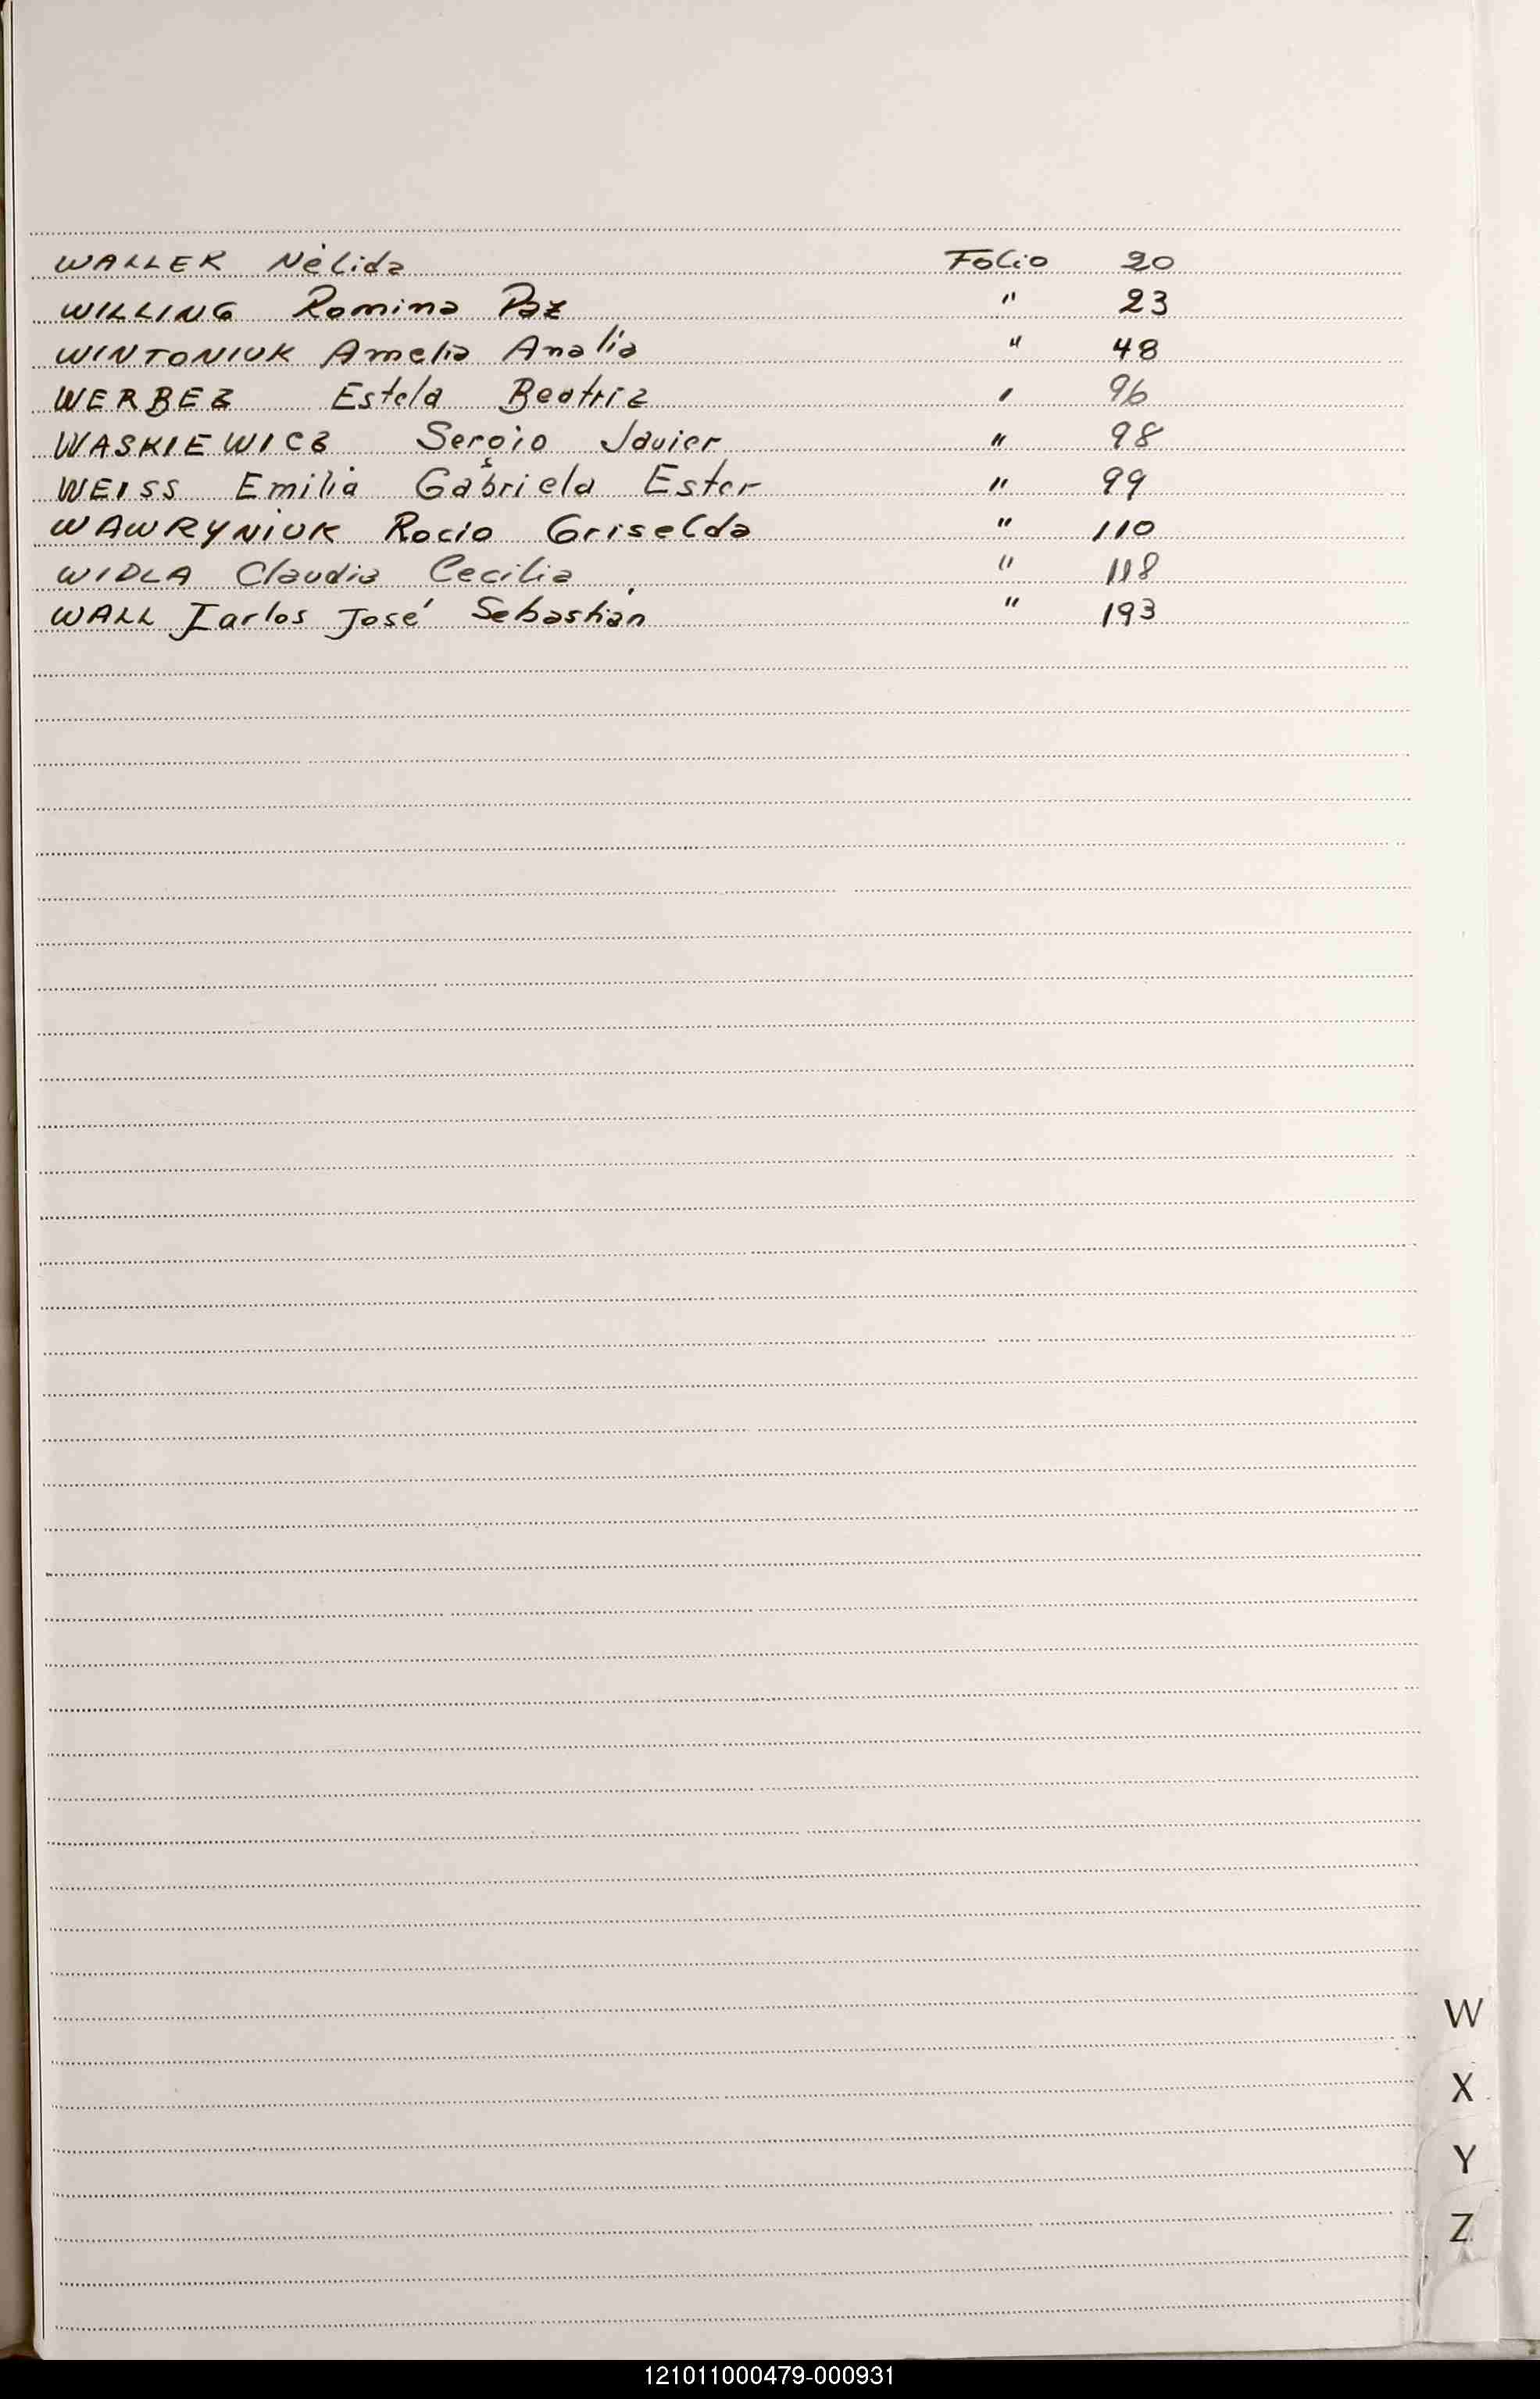 WALLER Nélida Folio 20
WILLING Romina Paz " 23
WINTONIUK Amelia Analia " 48
WERBEZ Estela Beatriz " 96
WASKIEWICZ Sergio Javier " 98
WEISS Emilia Gabriela Ester " 99
WAWRYNIUK Rocio Griselda " 110
WIDLA Claudia Cecilia " 118
WALL José Sebastián " 193
W
X
Y
Z
121011000479-000931